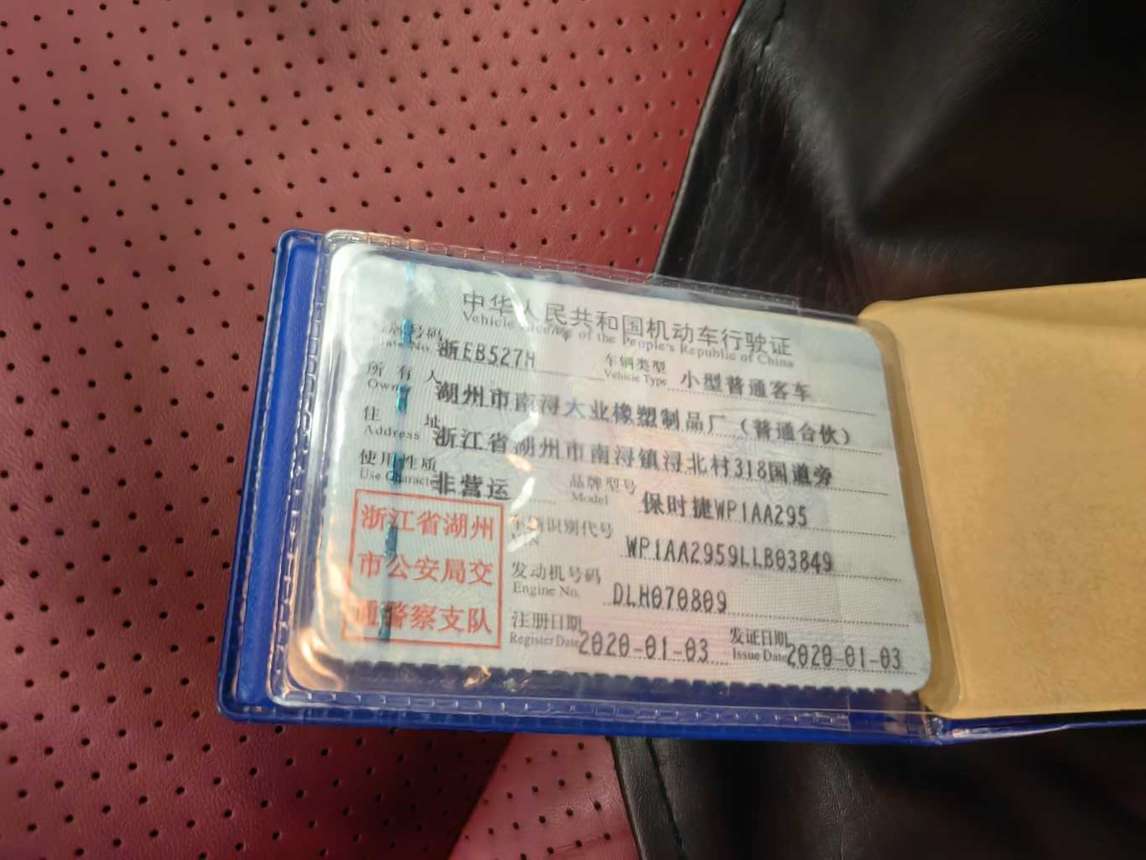 中华人民共和国机动车行驶证
Vehicle License of the People's Republic of China
号码 浙EB527H 车辆类型 Vehicle Type 小型普通客车
所有人 Owner 湖州市南浔大业橡塑制品厂（普通合伙）
住址 Address 浙江省湖州市南浔镇浔北村318国道旁
使用性质 Use Character 非营运 品牌型号 Model 保时捷WP1AA295
识别代号 WP1AA2959LLB03849
发动机号码 Engine No. DLH070809
注册日期 Register Date 2020-01-03 发证日期 Issue Date 2020-01-03
浙江省湖州
市公安局交
通警察支队